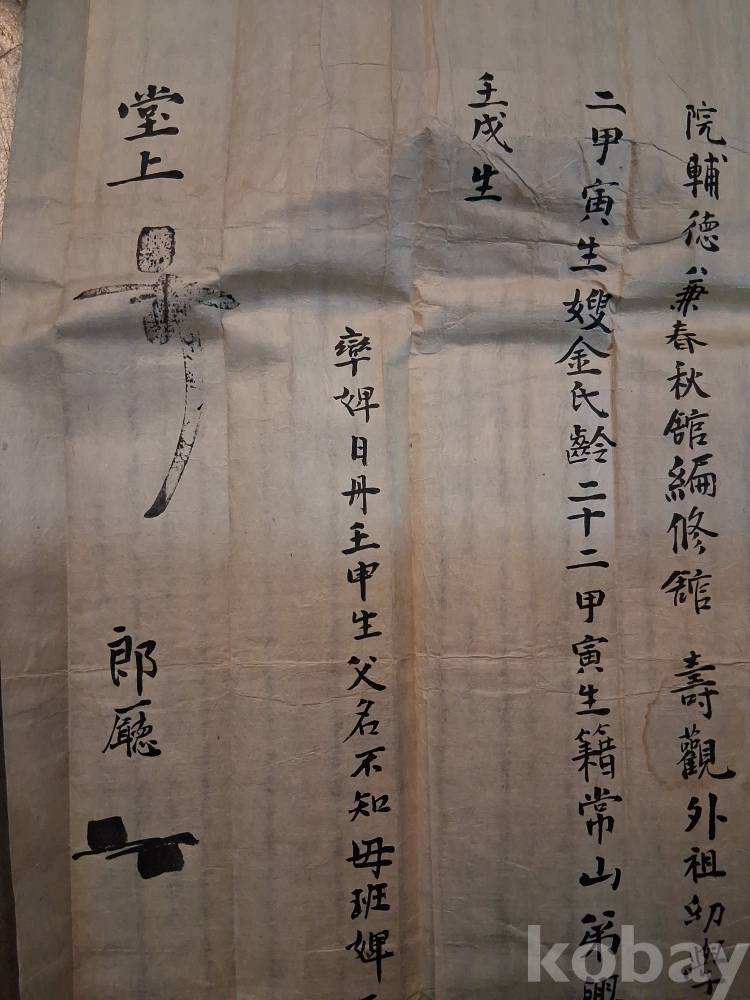 院輔德兼春秋館編修館 壽觀外祖幼學
二甲寅生嫂金氏齡二十二甲寅生籍常山弟
壬戌生
率婢日丹壬申生父名不知母班婢
堂上
郎廳
kobay